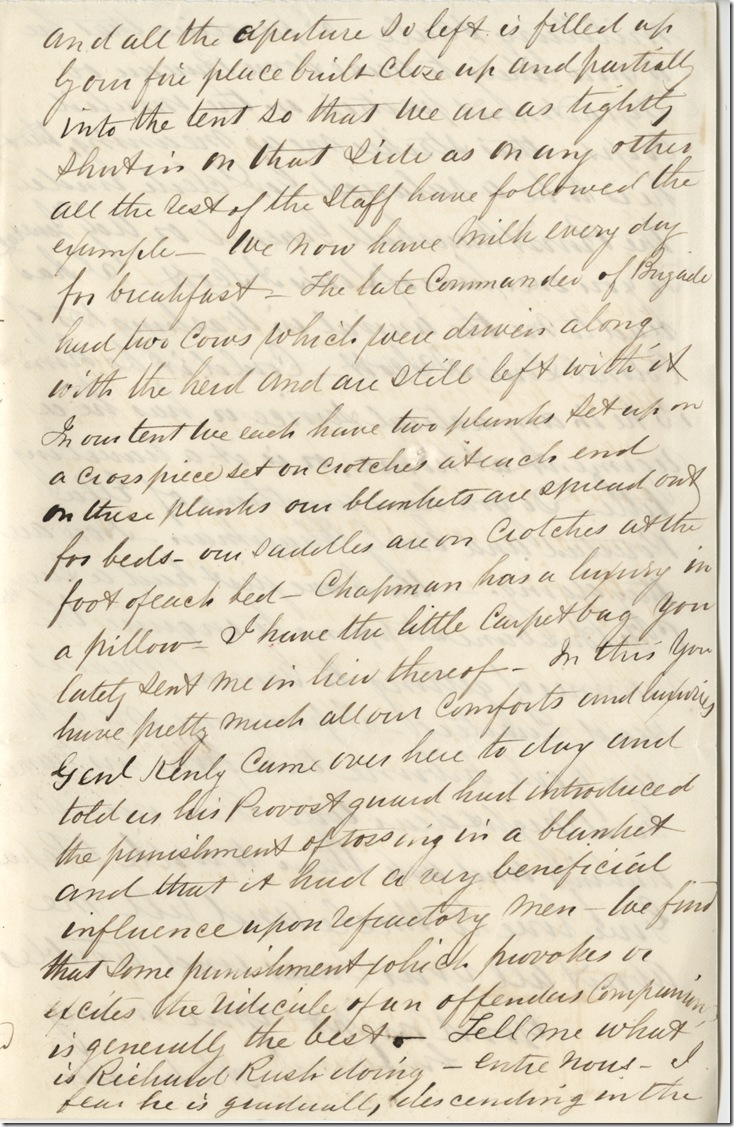 and all the aperture so left is filled up
by our fire place built close up and partially
into the tent so that we are as tightly
shut in on that side as on any other
all the rest of the Staff have followed the
example — We now have milk every day
for breakfast — The late Commander of Brigade
had two Cows which were driven along
with the herd and are still left with it
In our tent we each have two planks set up on
a crosspiece set on crotches at each end
on these planks our blankets are spread out
for beds — our saddles are on crotches at the
foot of each bed — Chapman has a luxury in
a pillow — I have the little carpet bag you
lately sent me in lieu thereof — In this you
have pretty much all our comforts and luxuries
Genl Kenly came over here to day and
told us his Provost guard had introduced
the punishment of tossing in a blanket
and that it had a very beneficial
influence upon refractory men — We find
that some punishment which provokes or
excites the ridicule of an offenders Companions
is generally the best — Tell me what
is Richard Rush doing — entre nous — I
fear he is gradually descending in the